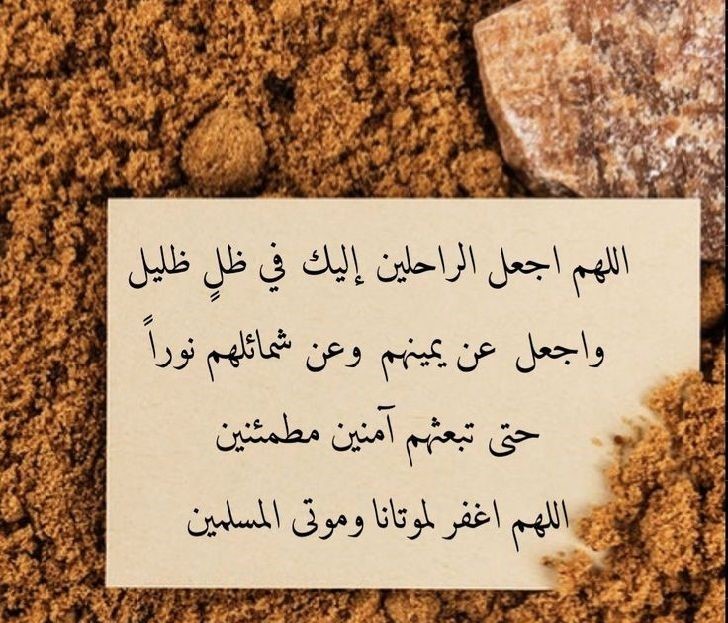 اللهم اجعل الراحلين إليك في ظلٍ ظليل
واجعل عن يمينهم وعن شمائلهم نوراً
حتى تبعثهم آمنين مطمئنين
اللهم اغفر لموتانا وموتى المسلمين